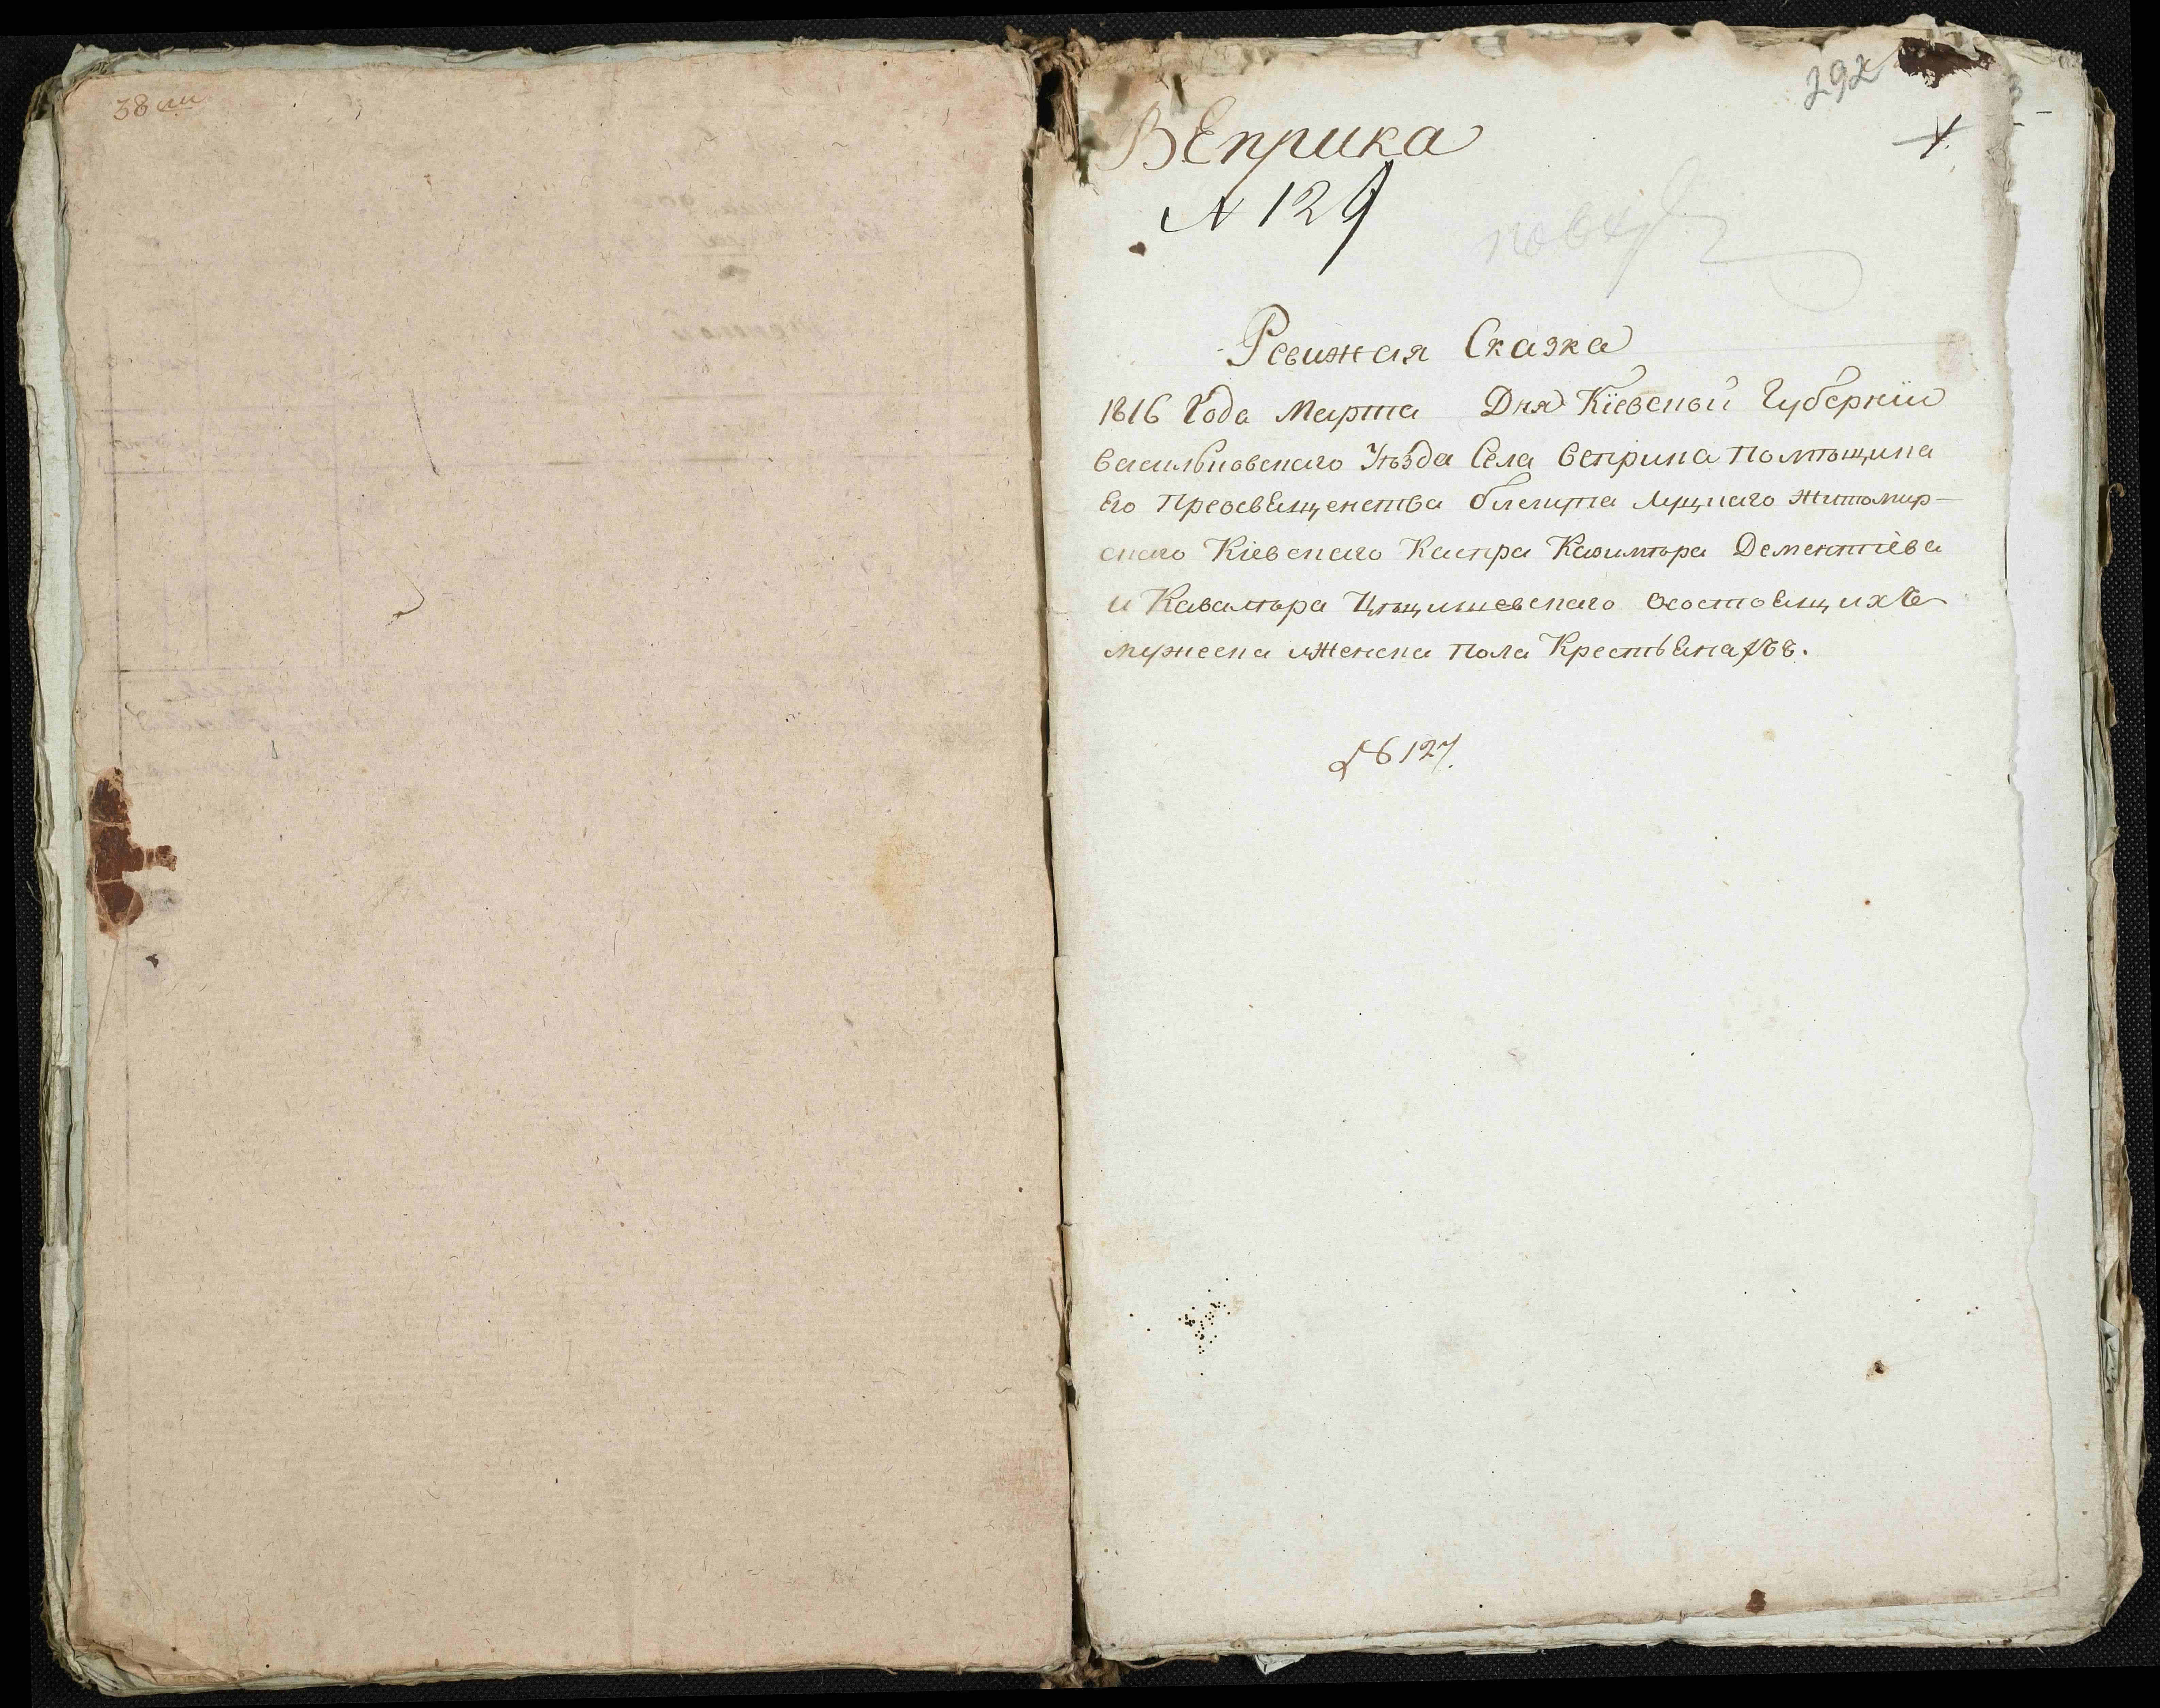 38
292
ВЕприка
1.
N 129
Ревижная Сказка
1816 Года Марта Дня Кіевской Губерніи
васильковского Уѣзда Села веприка Помѣщика
Его Преосвященства бискупа луцкаго житомир-
скаго Кіевскаго Каспра Казимѣра Дементіева
и Кавалѣра Цѣцишевскаго осостоящихъ
мужеска иженска Пола Крестьянахъ.
127.